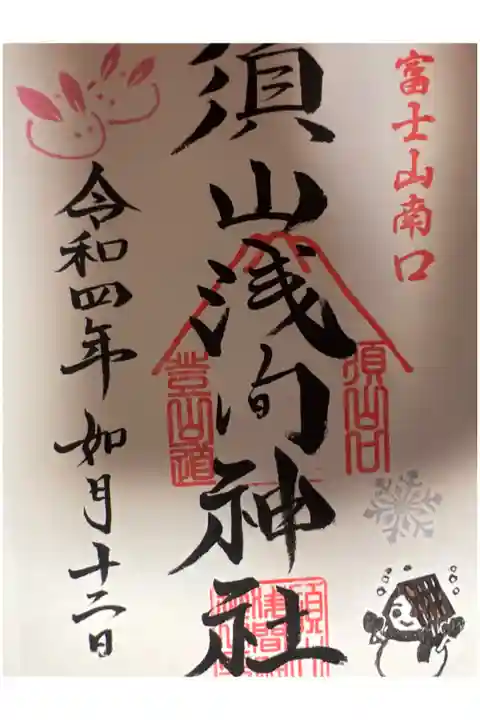 富士山南口
須山浅间神社
須山口
登山道
令和四年 如月十二日